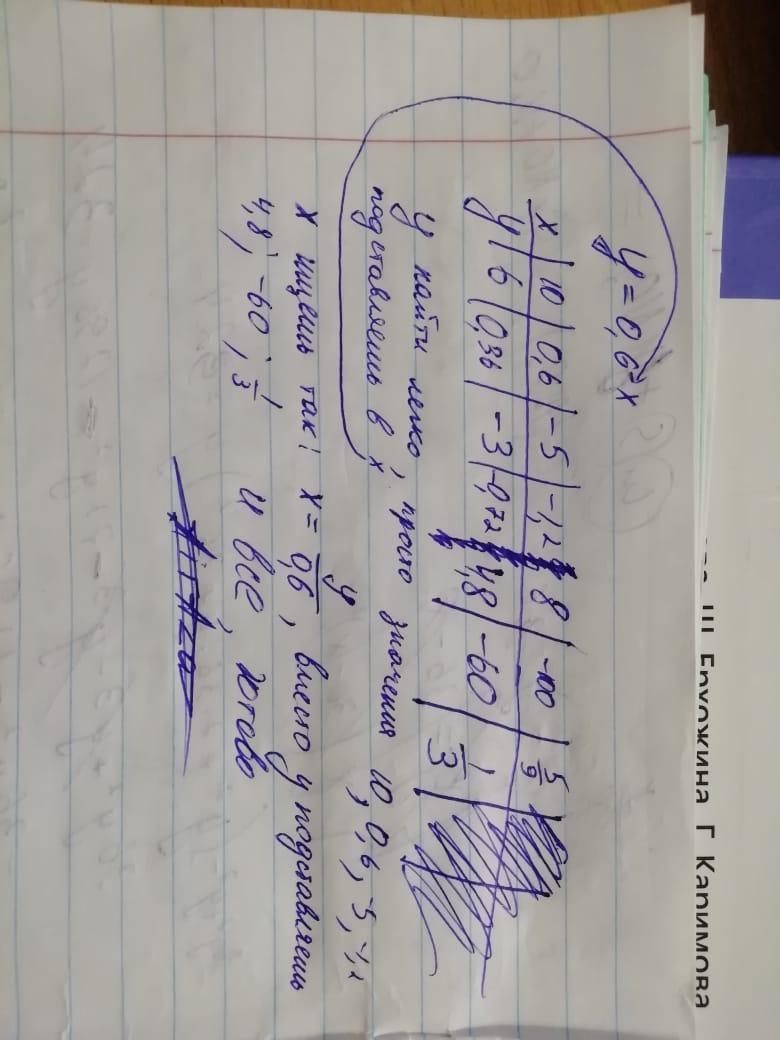 y = 0,6x
x | 10 | 0,6 | -5 | -1,2 | 8 | -100 | 5/9
y | 6 | 0,36 | -3 | -0,72 | 4,8 | -60 | 1/3
у найти легко, просто значения 10, 0,6, -5, -1,2
подставляешь в х
х ищешь так: x = y/0,6, вместо у подставляешь
4,8; -60; 1/3 и все, готово
Ш Ерхожина Г Каримова